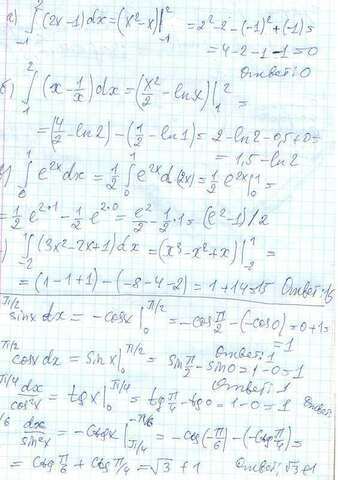 а) ∫₋₁² (2x-1)dx = (x²-x)|₋₁² = 2²-2-(-1)²+(-1) =
= 4-2-1-1=0
Ответ: 0
б) ∫₁² (x - 1/x)dx = (x²/2 - lnx)|₁² =
= (4/2 - ln2) - (1/2 - ln1) = 2 - ln2 - 0,5 + 0 =
= 1,5 - ln2
∫₀¹ e²ˣ dx = 1/2 ∫₀¹ e²ˣ d(2x) = 1/2 e²ˣ|₀¹ =
= 1/2 e^(2·1) - 1/2 e^(2·0) = e²/2 - 1/2 · 1 = (e²-1)/2
) ∫₋₂¹ (3x²-2x+1)dx = (x³-x²+x)|₋₂¹ =
= (1-1+1) - (-8-4-2) = 1+14=15 Ответ: 15
π/2 sinx dx = -cosx|₀^(π/2) = -cos π/2 - (-cos0) = 0+1=
=1
Ответ: 1
π/2 cosx dx = sinx|₀^(π/2) = sin π/2 - sin0 = 1-0=1
Ответ: 1
π/4 dx/cos²x = tgx|₀^(π/4) = tg π/4 - tg0 = 1-0=1 Ответ:
/6 dx/sin²x = -ctgx|_(π/4)^(-π/6) = -cos(-π/6) - (-ctg π/4) =
= ctg π/6 + ctg π/4 = √3 + 1 Ответ: √3+1